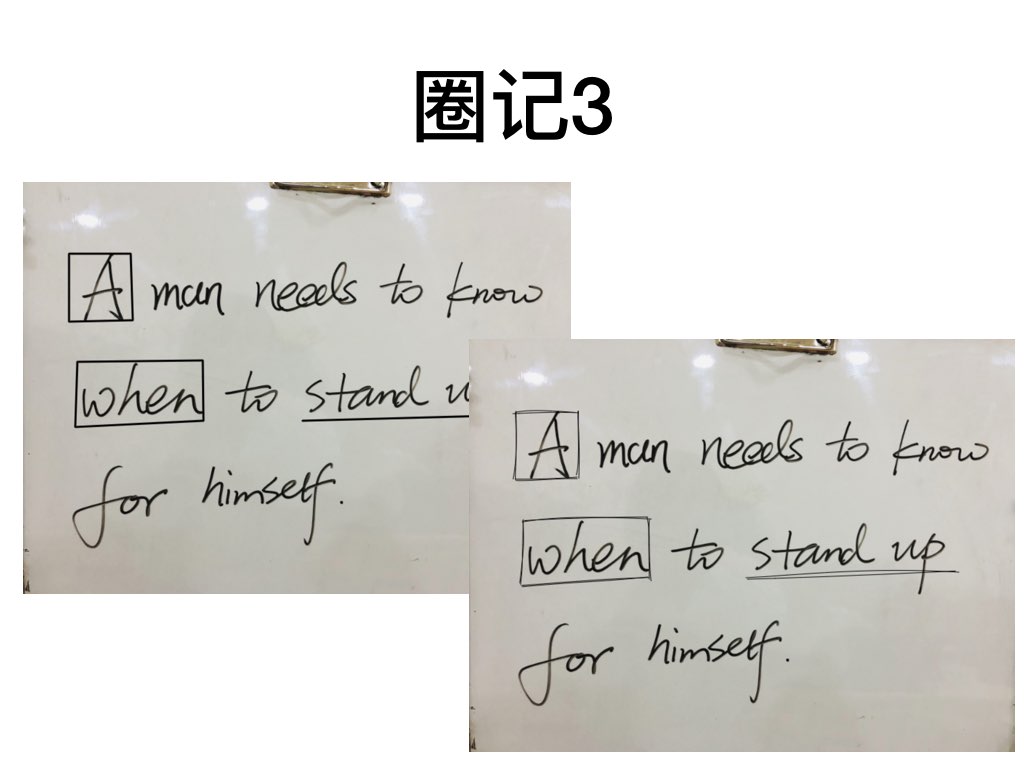 圈记3
A man needs to know
when to stand u
for himself.
A man needs to know
when to stand up
for himself.